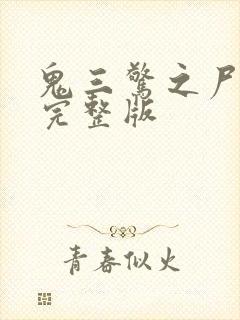 鬼三惊之尸
完整版
青春似火